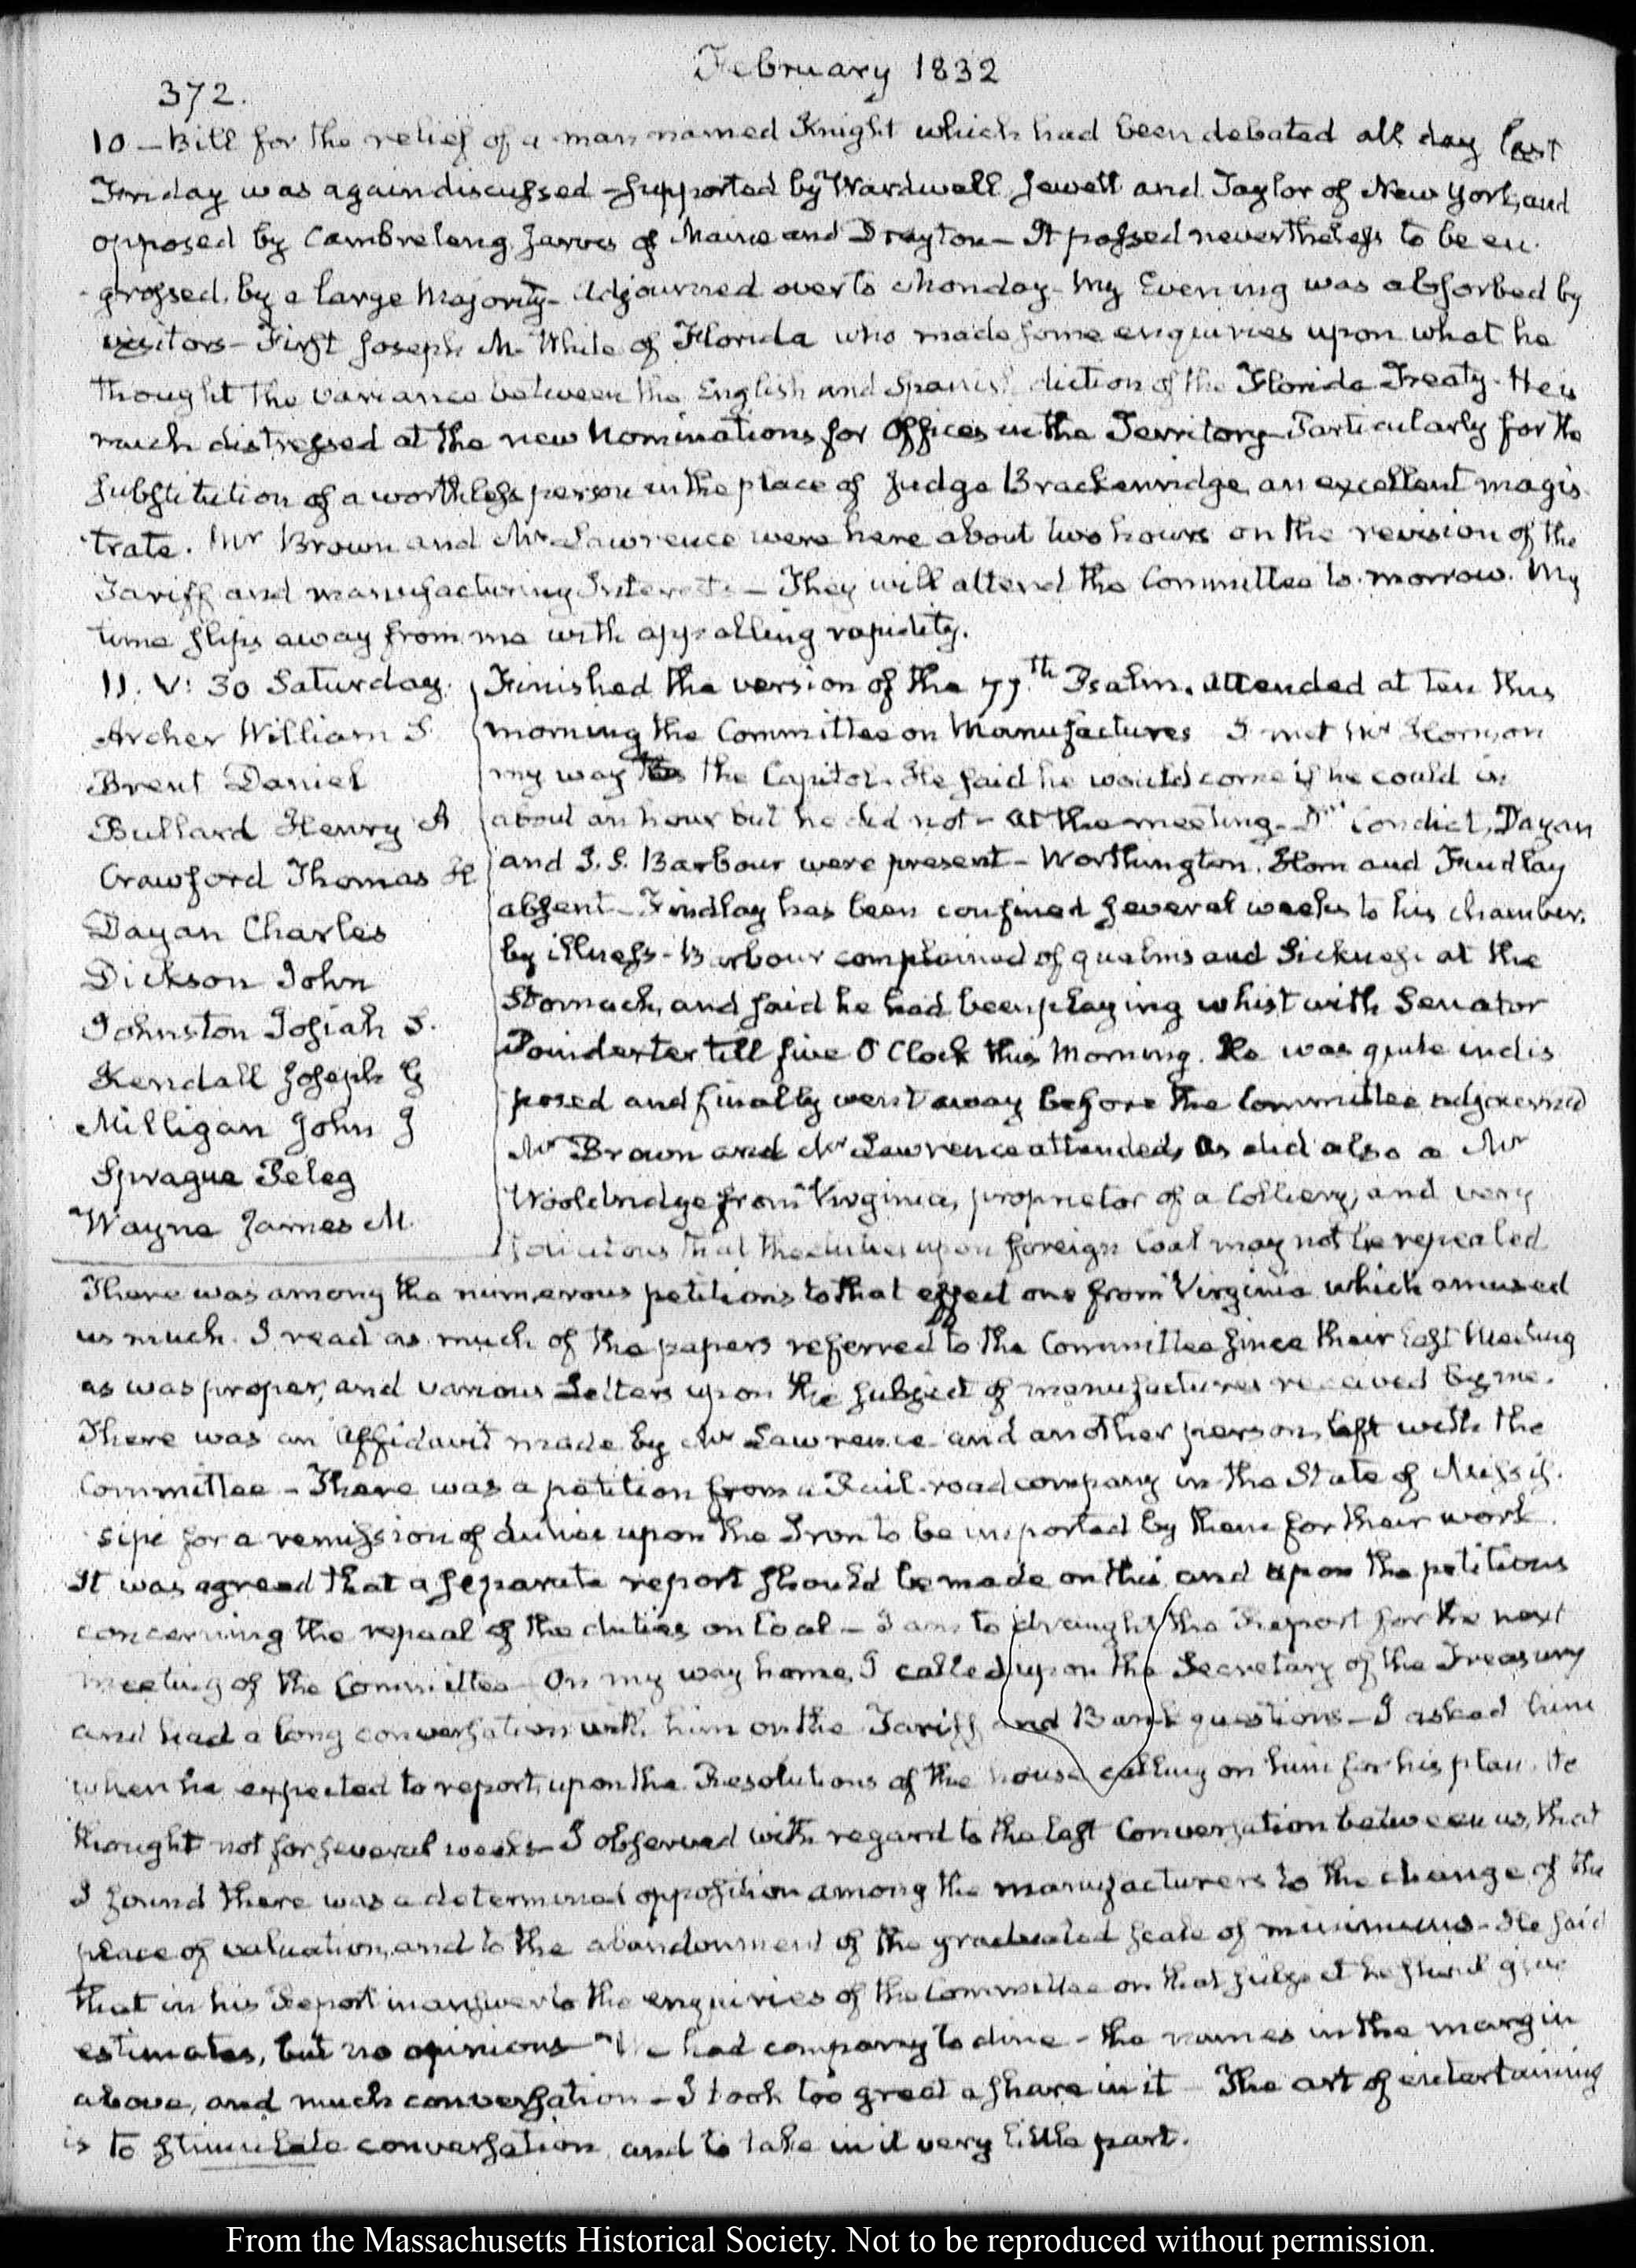 February 1832
372.
10 – Bill for the relief of a man named Knight which had been debated all day last
Friday was again discussed – supported by Wardwell Jewett and Taylor of New York, and
opposed by Cambreleng Jarvis of Maine and Drayton – It passed nevertheless to be en-
grossed, by a large Majority – Adjourned over to Monday – My Evening was absorbed by
visitors – First Joseph M. White of Florida who made some enquiries upon what he
thought the variance between the English and Spanish diction of the Florida Treaty – He is
much distressed at the new Nominations for Offices in the Territory – Particularly for the
substitution of a worthless person in the place of Judge Brackenridge, an excellent magis-
trate. Mr Brown and Mr Lawrence were here about two hours on the revision of the
Tariff and manufacturing Interests – They will attend the Committee to-morrow. My
time slips away from me with appalling rapidity.
11. V: 30 Saturday.
Archer William S.
Brent Daniel
Bullard Henry A
Crawford Thomas H
Dayan Charles
Dickson John
Johnston Josiah S.
Kendall Joseph G
Milligan John J
Sprague Peleg
Wayne James M.
Finished the version of the 77th Psalm. Attended at ten this
morning the Committee on Manufactures I met Mr Horn, on
my way to the Capitol. He said he would come if he could in
about an hour but he did not – At the meeting – Dr Condict, Dayan
and J. S. Barbour were present – Worthington, Horn and Findlay
absent – Findlay has been confined several weeks to his chamber,
by illness – Barbour complained of qualms and Sickness at the
Stomach, and said he had been playing whist with Senator
Poindexter till five O'Clock this Morning. He was quite indis
posed and finally went away before the Committee adjourned
Mr Brown and Mr Lawrence attended, as did also a Mr
Wooldridge from Virginia, proprietor of a Colliery, and very
solicitous that the duties upon foreign Coal may not be repealed
There was among the numerous petitions to that effect one from Virginia which amused
us much. I read as much of the papers referred to the Committee since their last Meeting
as was proper, and various Letters upon the subject of manufactures received by me.
There was an Affidavit made by Mr Lawrence and another person, left with the
Committee – There was a petition from a Rail-road company in the State of Missis-
sipi for a remission of duties upon the Iron to be imported by them for their work.
It was agreed that a separate report should be made on this, and upon the petitions
concerning the repeal of the duties on Coal – I am to draught the Report for the next
meeting of the Committee – On my way home, I called upon the Secretary of the Treasury
and had a long conversation with him on the Tariff and Bank questions – I asked him
when he expected to report, upon the Resolutions of the house calling on him for his plan. He
thought not for several weeks – I observed with regard to the last Conversation between us, that
I found there was a determined opposition among the manufacturers to the change of the
place of valuation, and to the abandonment of the graduated scale of minimums – He said
that in his Report in answer to the enquiries of the Committee on that subject he should give
estimates, but no opinions – We had company to dine – the names in the margin
above, and much conversation – I took too great a share in it – The art of entertaining
is to stimulate conversation, and to take in it very little part.
From the Massachusetts Historical Society. Not to be reproduced without permission.